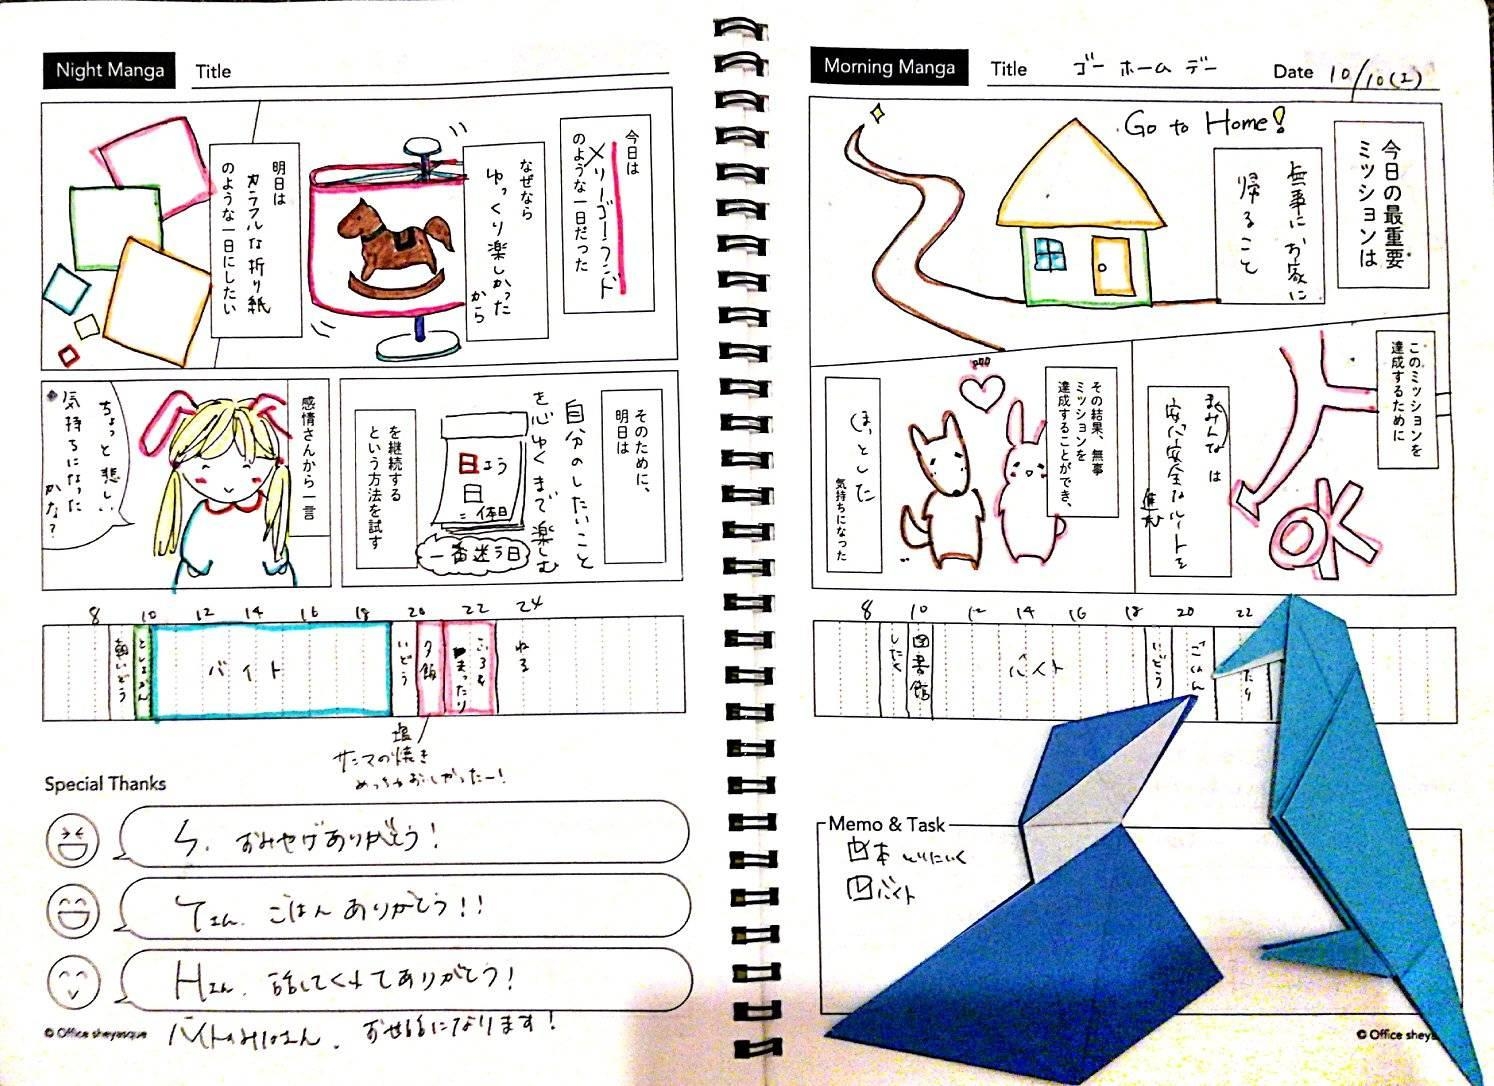 Night Manga
Title
今日は
メリーゴーランド
のような一日だった
なぜなら
ゆっくり楽しかった
から
明日は
カラフルな折り紙
のような一日にしたい
そのために、
明日は
自分のしたいこと
を心ゆくまで楽しむ
を継続する
という方法を試す
日
日
=休日
一番迷う日
感情さんから一言
ちょっと悲しい
気持ちになった
かな?
8 10 12 14 16 18 20 22 24
としょかん
バイト
いどう
夕飯
まったり
ねる
塩
サンマの焼き
めっちゃおいしかったー!
Special Thanks
おみやげありがとう!
ごはんありがとう!!
Hさん、話してくれてありがとう!
お世話になります!
© Office sheyesque
Morning Manga
Title ゴー ホーム デー
Date 10/10
Go to Home!
今日の最重要
ミッションは
無事にお家に
帰ること
このミッションを
達成するために
安心安全なルートを
進む
OK
その結果、無事
ミッションを
達成することができ、
ほっとした
気持ちになった
8 10 12 14 16 18 20 22
したく
図書館
バイト
いどう
ごはん
たり
Memo & Task
本 とりにいく
バイト
© Office shey